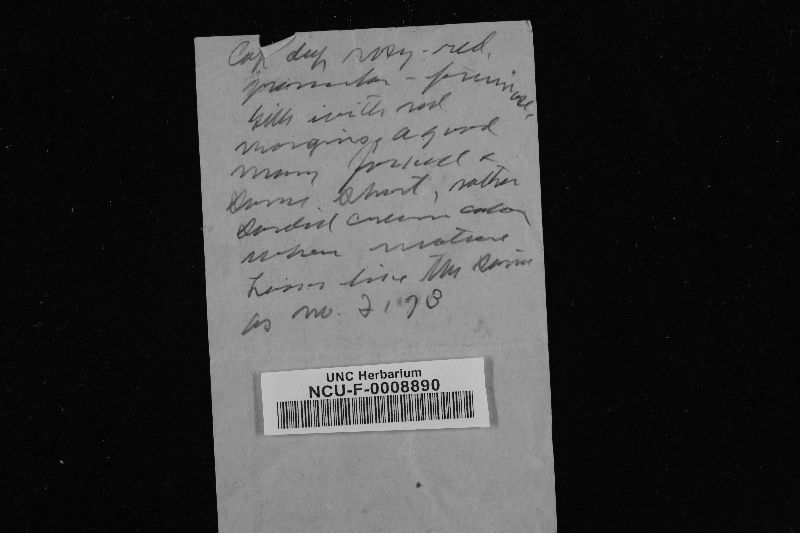 Cap deep rosy-red,
granular - pruinose,
Gills with red
margins, a good
many forked &
some short, rather
sordid cream color
when mature
Looks like the same
as no. 2198
UNC Herbarium
NCU-F-0008890